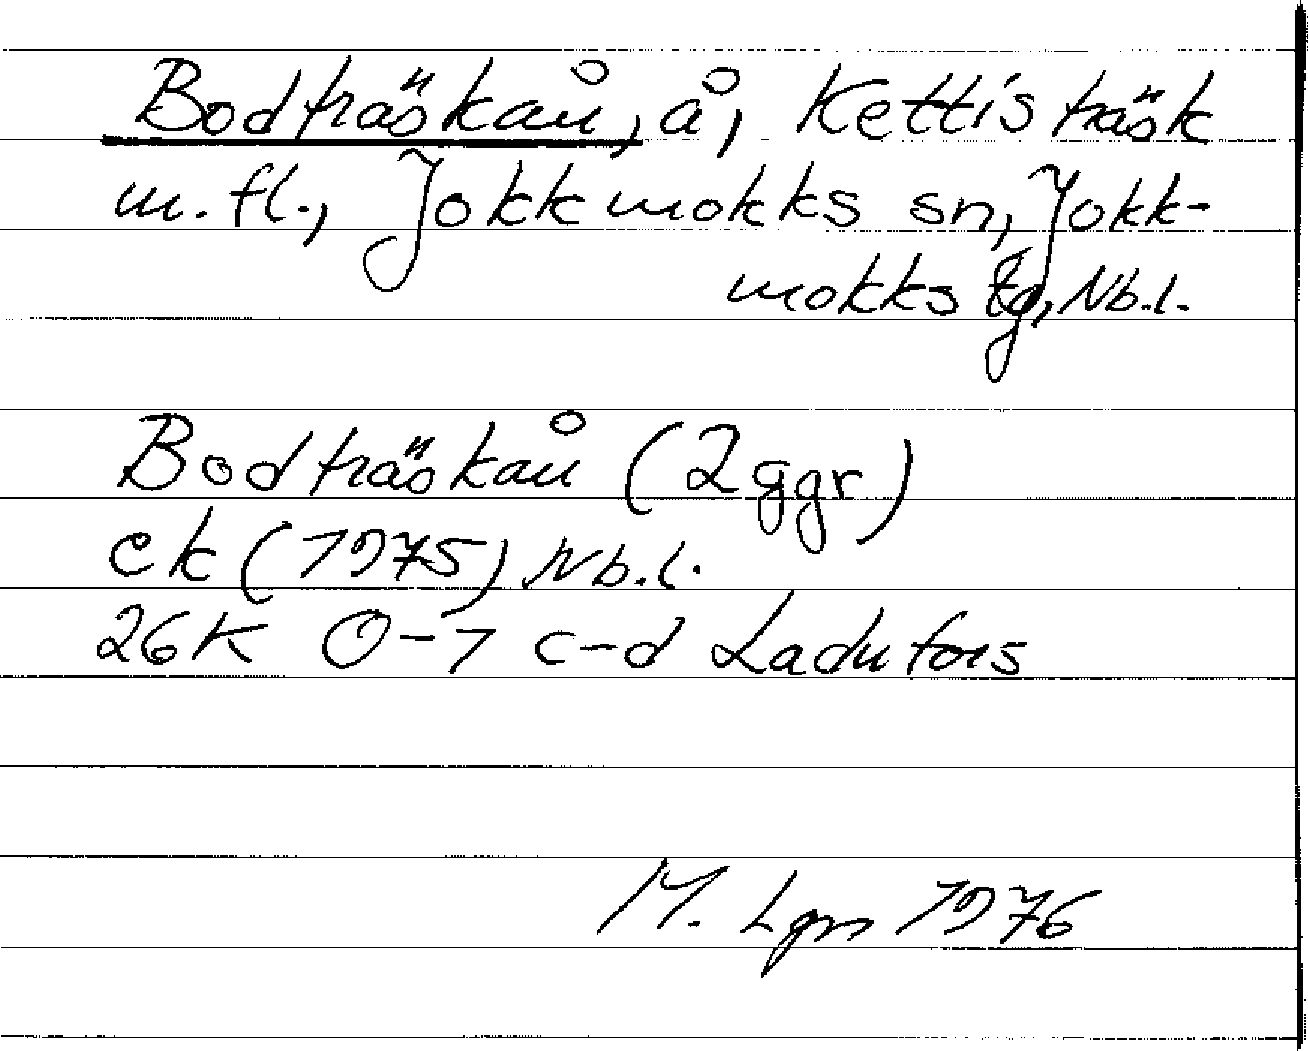 Bodträskån, å, Kettisträsk
m.fl., Jokkmokks sn, Jokk-
mokks tg, Nb.l.
Bodträskån (2 ggr)
ek (1975) Nb.l.
26K 0-1 c-d Ladufors
M. Lgn 1976